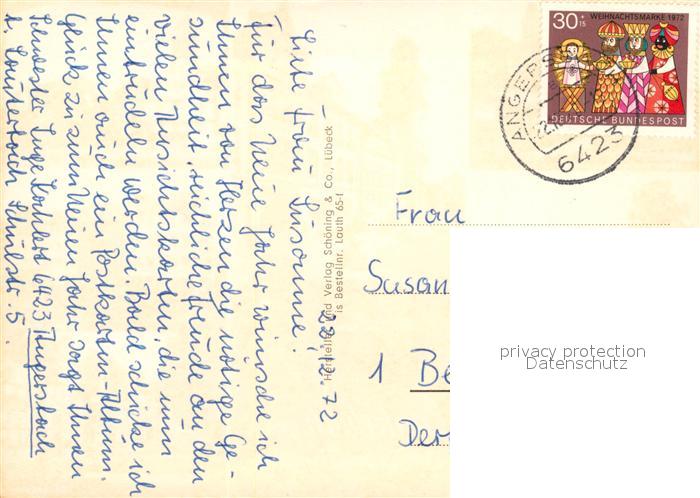 22.12.72
Liebe Frau Susanne!
Für das Neue Jahr wünsche ich
Ihnen von Herzen die nötige Ge-
sundheit, reichliche Freude an den
vielen Ansichtskarten, die nun
eintrudeln werden. Bald schicke ich
Ihnen auch ein Postkarten-Album.
Glück zu zum Neuen Jahr sagt Ihnen
Schwester Inge 6423 Angersbach
b. Lauterbach Schulstr. 5.
Hersteller und Verlag Schöning & Co., Lübeck
is Bestellnr. Lauth 65-1
30+15
WEIHNACHTSMARKE 1972
DEUTSCHE BUNDESPOST
ANGER
6423
Frau
Susan
1 Be
Der
privacy protection
Datenschutz